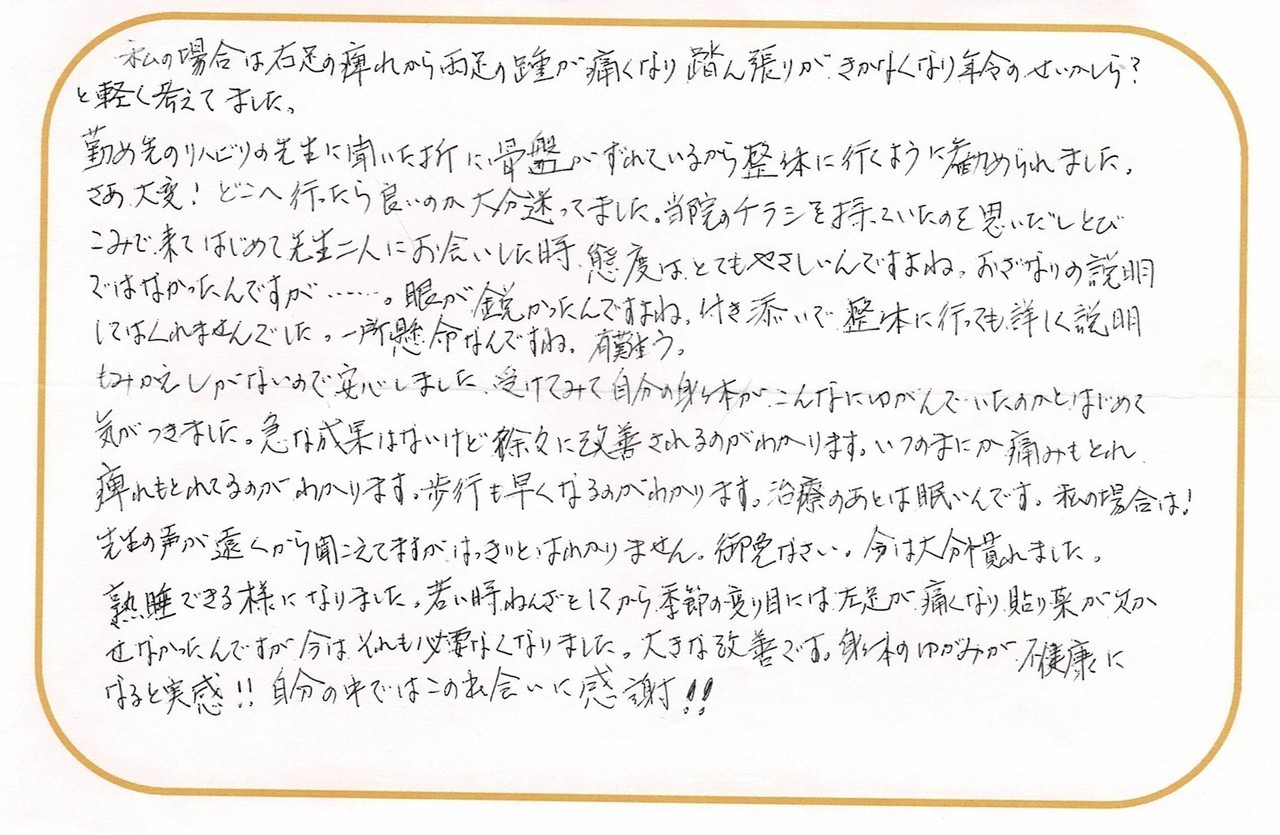 私の場合は右足の痺れから両足の踵が痛くなり踏ん張りがきかなくなり年令のせいかしら?
と軽く考えてました。
勤め先のリハビリの先生に聞いた折に骨盤がずれているから整体に行くように勧められました。
さあ大変!どこへ行ったら良いのか大分迷ってました。当院のチラシを持っていたのを思いだしとび
こみで来てはじめて先生二人にお会いした時、態度はとてもやさしいんですよね。おざなりの説明
ではなかったんですが……。眼が鋭かったんですよね。付き添いで整体に行っても詳しく説明
してはくれませんでした。一所懸命なんですね。有難う。
もみかえしがないので安心しました。受けてみて自分の身体がこんなにゆがんでいたのかとはじめて
気がつきました。急な成果はないけど徐々に改善されるのがわかります。いつのまにか痛みもとれ
痺れもとれてるのがわかります。歩行も早くなるのがわかります。治療のあとは眠いんです。私の場合は!
先生の声が遠くから聞こえてますがはっきりとはわかりません。御免なさい。今は大分慣れました。
熟睡できる様になりました。若い時ねんざをしてから季節の変り目には左足が痛くなり貼り薬が欠か
せなかったんですが今はそれも必要なくなりました。大きな改善です。身体のゆがみが不健康に
なると実感!!自分の中ではこの出会いに感謝!!